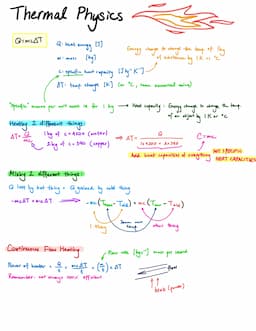 Thermal Physics
Q = mcΔT
Q: heat energy [J]
m: mass [kg]
c: specific heat capacity [J kg⁻¹ K⁻¹]
ΔT: temp change [K] (or °C, same numerical value)
Energy change to change the temp of 1kg
of substance by 1K or °C
"Specific" means per unit mass i.e. for 1 kg → Heat capacity: Energy change to change the temp
of an object by 1K or °C
Heating 2 different things:
ΔT = Q / mc
1kg of c = 4200 (water)
2kg of c = 390 (copper)
→ ΔT = Q / (1×4200 + 2×390)
C = mc
Add heat capacities of everything NOT SPECIFIC
HEAT CAPACITIES
Mixing 2 different things:
Q lost by hot thing = Q gained by cold thing
-mcΔT = mcΔT
-mc(T - T) = mc(T - T)
1 thing
same
temp
other thing
Continuous Flow Heating:
Flow rate [kg s⁻¹] mass per second
Power of heater = Q/t = mcΔT/t = (m/t) c ΔT
Remember: not always 100% efficient
flow
heat (power)